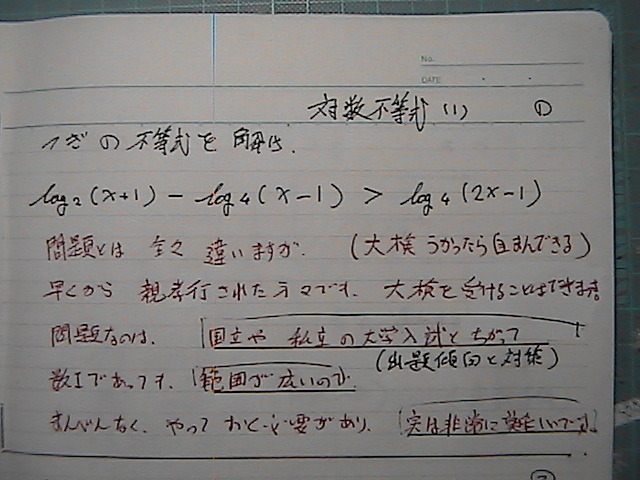 No.
DATE
対数不等式(1) ①
つぎの不等式を解け.
log₂(x+1) - log₄(x-1) > log₄(2x-1)
問題とは 全々 違いますが. (大検 うかったら自まんできる)
早くから 親孝行された方々です. 大検を受けることはできます
問題なのは、国立や 私立の大学入試とちがって
(出題傾向と対策)
数Iであっても、範囲が広いので
まんべんなく、やって おく必要があり、実は非常に難しいです
②